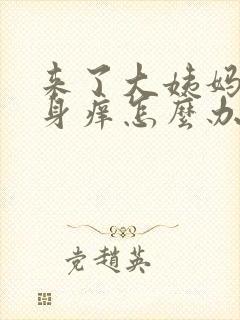 来了大姨妈
身痒怎麼办
党趙英